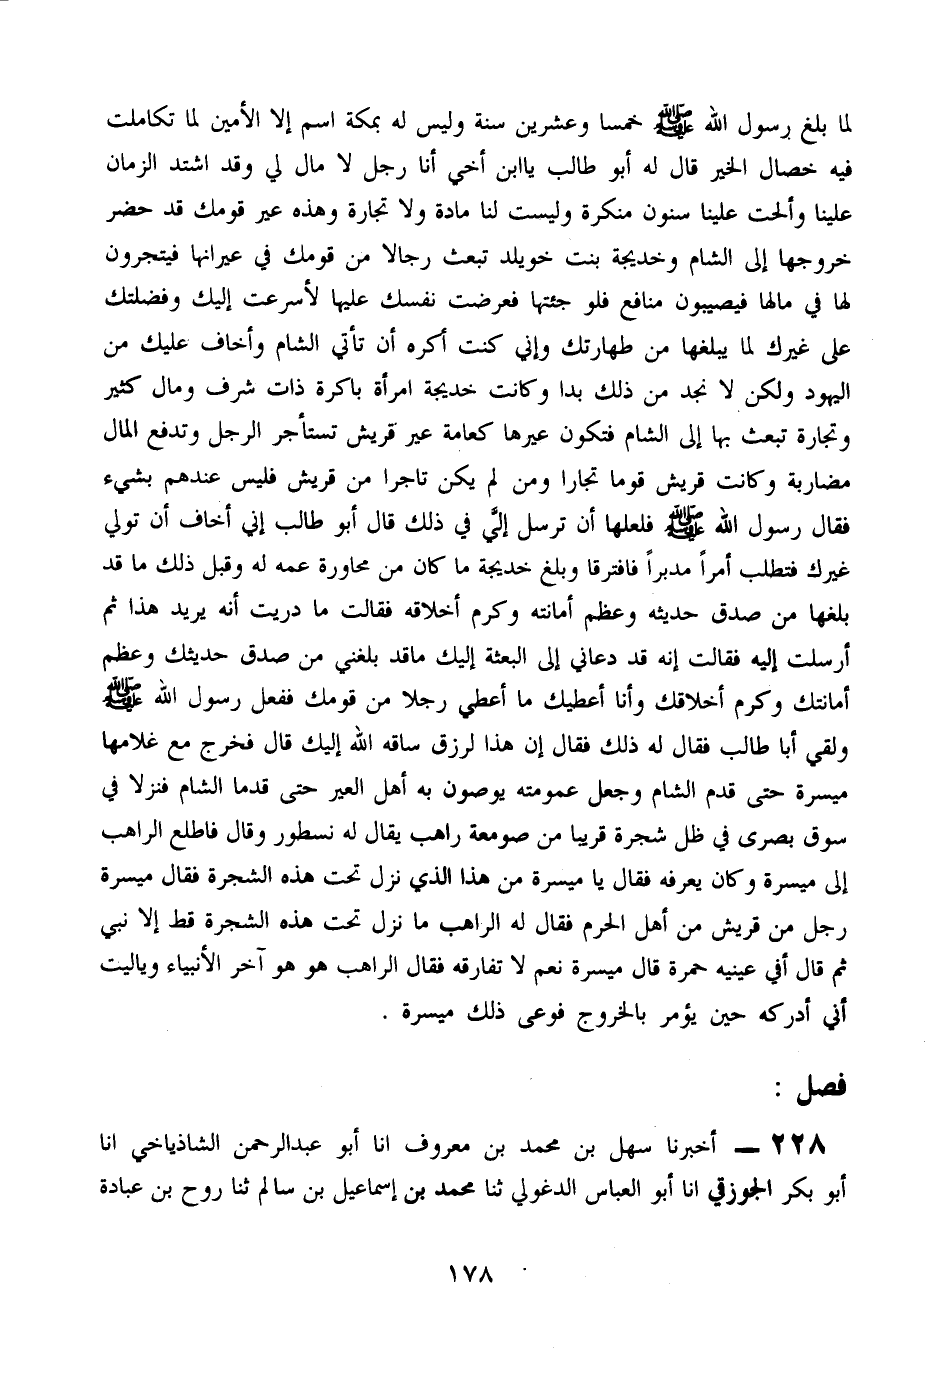 لما بلغ رسول الله ﷺ خمسا وعشرين سنة وليس له بمكة اسم إلا الأمين لما تكاملت
فيه خصال الخير قال له أبو طالب ياابن أخي أنا رجل لا مال لي وقد اشتد الزمان
علينا وألحت علينا سنون منكرة وليست لنا مادة ولا تجارة وهذه عير قومك قد حضر
خروجها إلى الشام وخديجة بنت خويلد تبعث رجالا من قومك في عيرانها فيتجرون
لها في مالها فيصيبون منافع فلو جئتها فعرضت نفسك عليها لأسرعت إليك وفضلتك
على غيرك لما يبلغها من طهارتك وإني كنت أكره أن تأتي الشام وأخاف عليك من
اليهود ولكن لا نجد من ذلك بدا وكانت خديجة امرأة باكرة ذات شرف ومال كثير
وتجارة تبعث بها إلى الشام فتكون عيرها كعامة عير قريش تستأجر الرجل وتدفع المال
مضاربة وكانت قريش قوما تجارا ومن لم يكن تاجرا من قريش فليس عندهم بشيء
فقال رسول الله ﷺ فلعلها أن ترسل إليَّ في ذلك قال أبو طالب إني أخاف أن تولي
غيرك فتطلب أمراً مدبراً فافترقا وبلغ خديجة ما كان من محاورة عمه له وقبل ذلك ما قد
بلغها من صدق حديثه وعظم أمانته وكرم أخلاقه فقالت ما دريت أنه يريد هذا ثم
أرسلت إليه فقالت إنه قد دعاني إلى البعثة إليك ماقد بلغني من صدق حديثك وعظم
أمانتك وكرم أخلاقك وأنا أعطيك ما أعطي رجلا من قومك ففعل رسول الله ﷺ
ولقي أبا طالب فقال له ذلك فقال إن هذا لرزق ساقه الله إليك قال فخرج مع غلامها
ميسرة حتى قدم الشام وجعل عمومته يوصون به أهل العير حتى قدما الشام فنزلا في
سوق بصرى في ظل شجرة قريبا من صومعة راهب يقال له نسطور وقال فاطلع الراهب
إلى ميسرة وكان يعرفه فقال يا ميسرة من هذا الذي نزل تحت هذه الشجرة فقال ميسرة
رجل من قريش من أهل الحرم فقال له الراهب ما نزل تحت هذه الشجرة قط إلا نبي
ثم قال أفي عينيه حمرة قال ميسرة نعم لا تفارقه فقال الراهب هو هو آخر الأنبياء وياليت
أني أدركه حين يؤمر بالخروج فوعى ذلك ميسرة .
فصل :
٢٢٨ ــ أخبرنا سهل بن محمد بن معروف انا أبو عبدالرحمن الشاذياخي انا
أبو بكر الجوزقي انا أبو العباس الدغولي ثنا محمد بن إسماعيل بن سالم ثنا روح بن عبادة
١٧٨